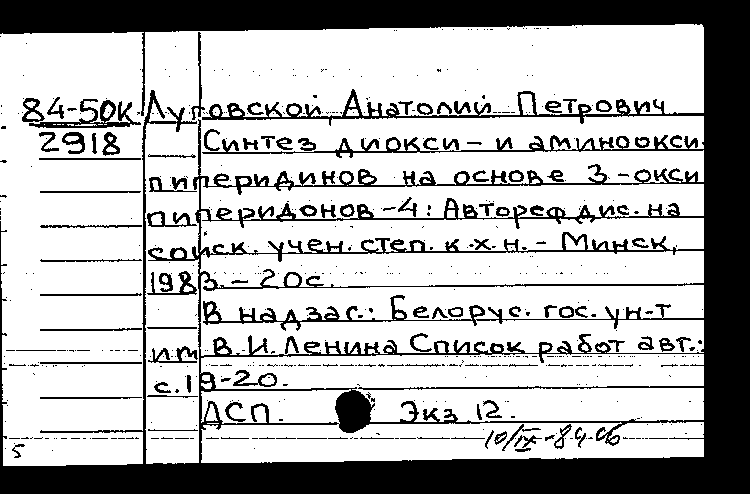 84-50К Луговской, Анатолий Петрович
2918 Синтез диокси- и аминоокси-
пиперидинов на основе 3-окси
пиперидонов-4: Автореф дис. на
соиск. учен. степ. к.х.н. - Минск,
1983. - 20с.
В надзаг.: Белорус. гос. ун-т
им В.И. Ленина Список работ авт.:
с.19-20.
ДСП. Экз. 12.
10/IX-84
5